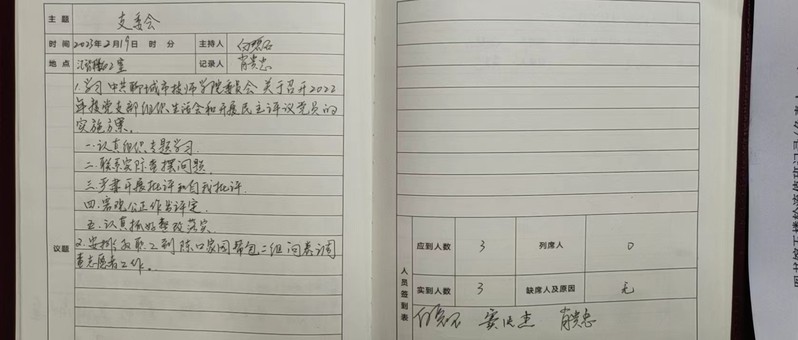 主题 支委会
时间 2023年2月19日 时 分 主持人
地点 记录人 肖贵忠
1.学习中共聊城市技师学院委员会关于召开2022
年度党支部组织生活会和开展民主评议党员的
实施方案。
一.认真组织专题学习.
二.联系实际查摆问题.
三.严肃开展批评和自我批评.
四.客观公正作出评定.
五.认真抓好整改落实.
议题
2.安排 职工到陈口家园 包二组问卷调
查志愿者工作。
应到人数 3 列席人 0
实到人数 3 缺席人及原因 无
人员签到表
肖贵忠